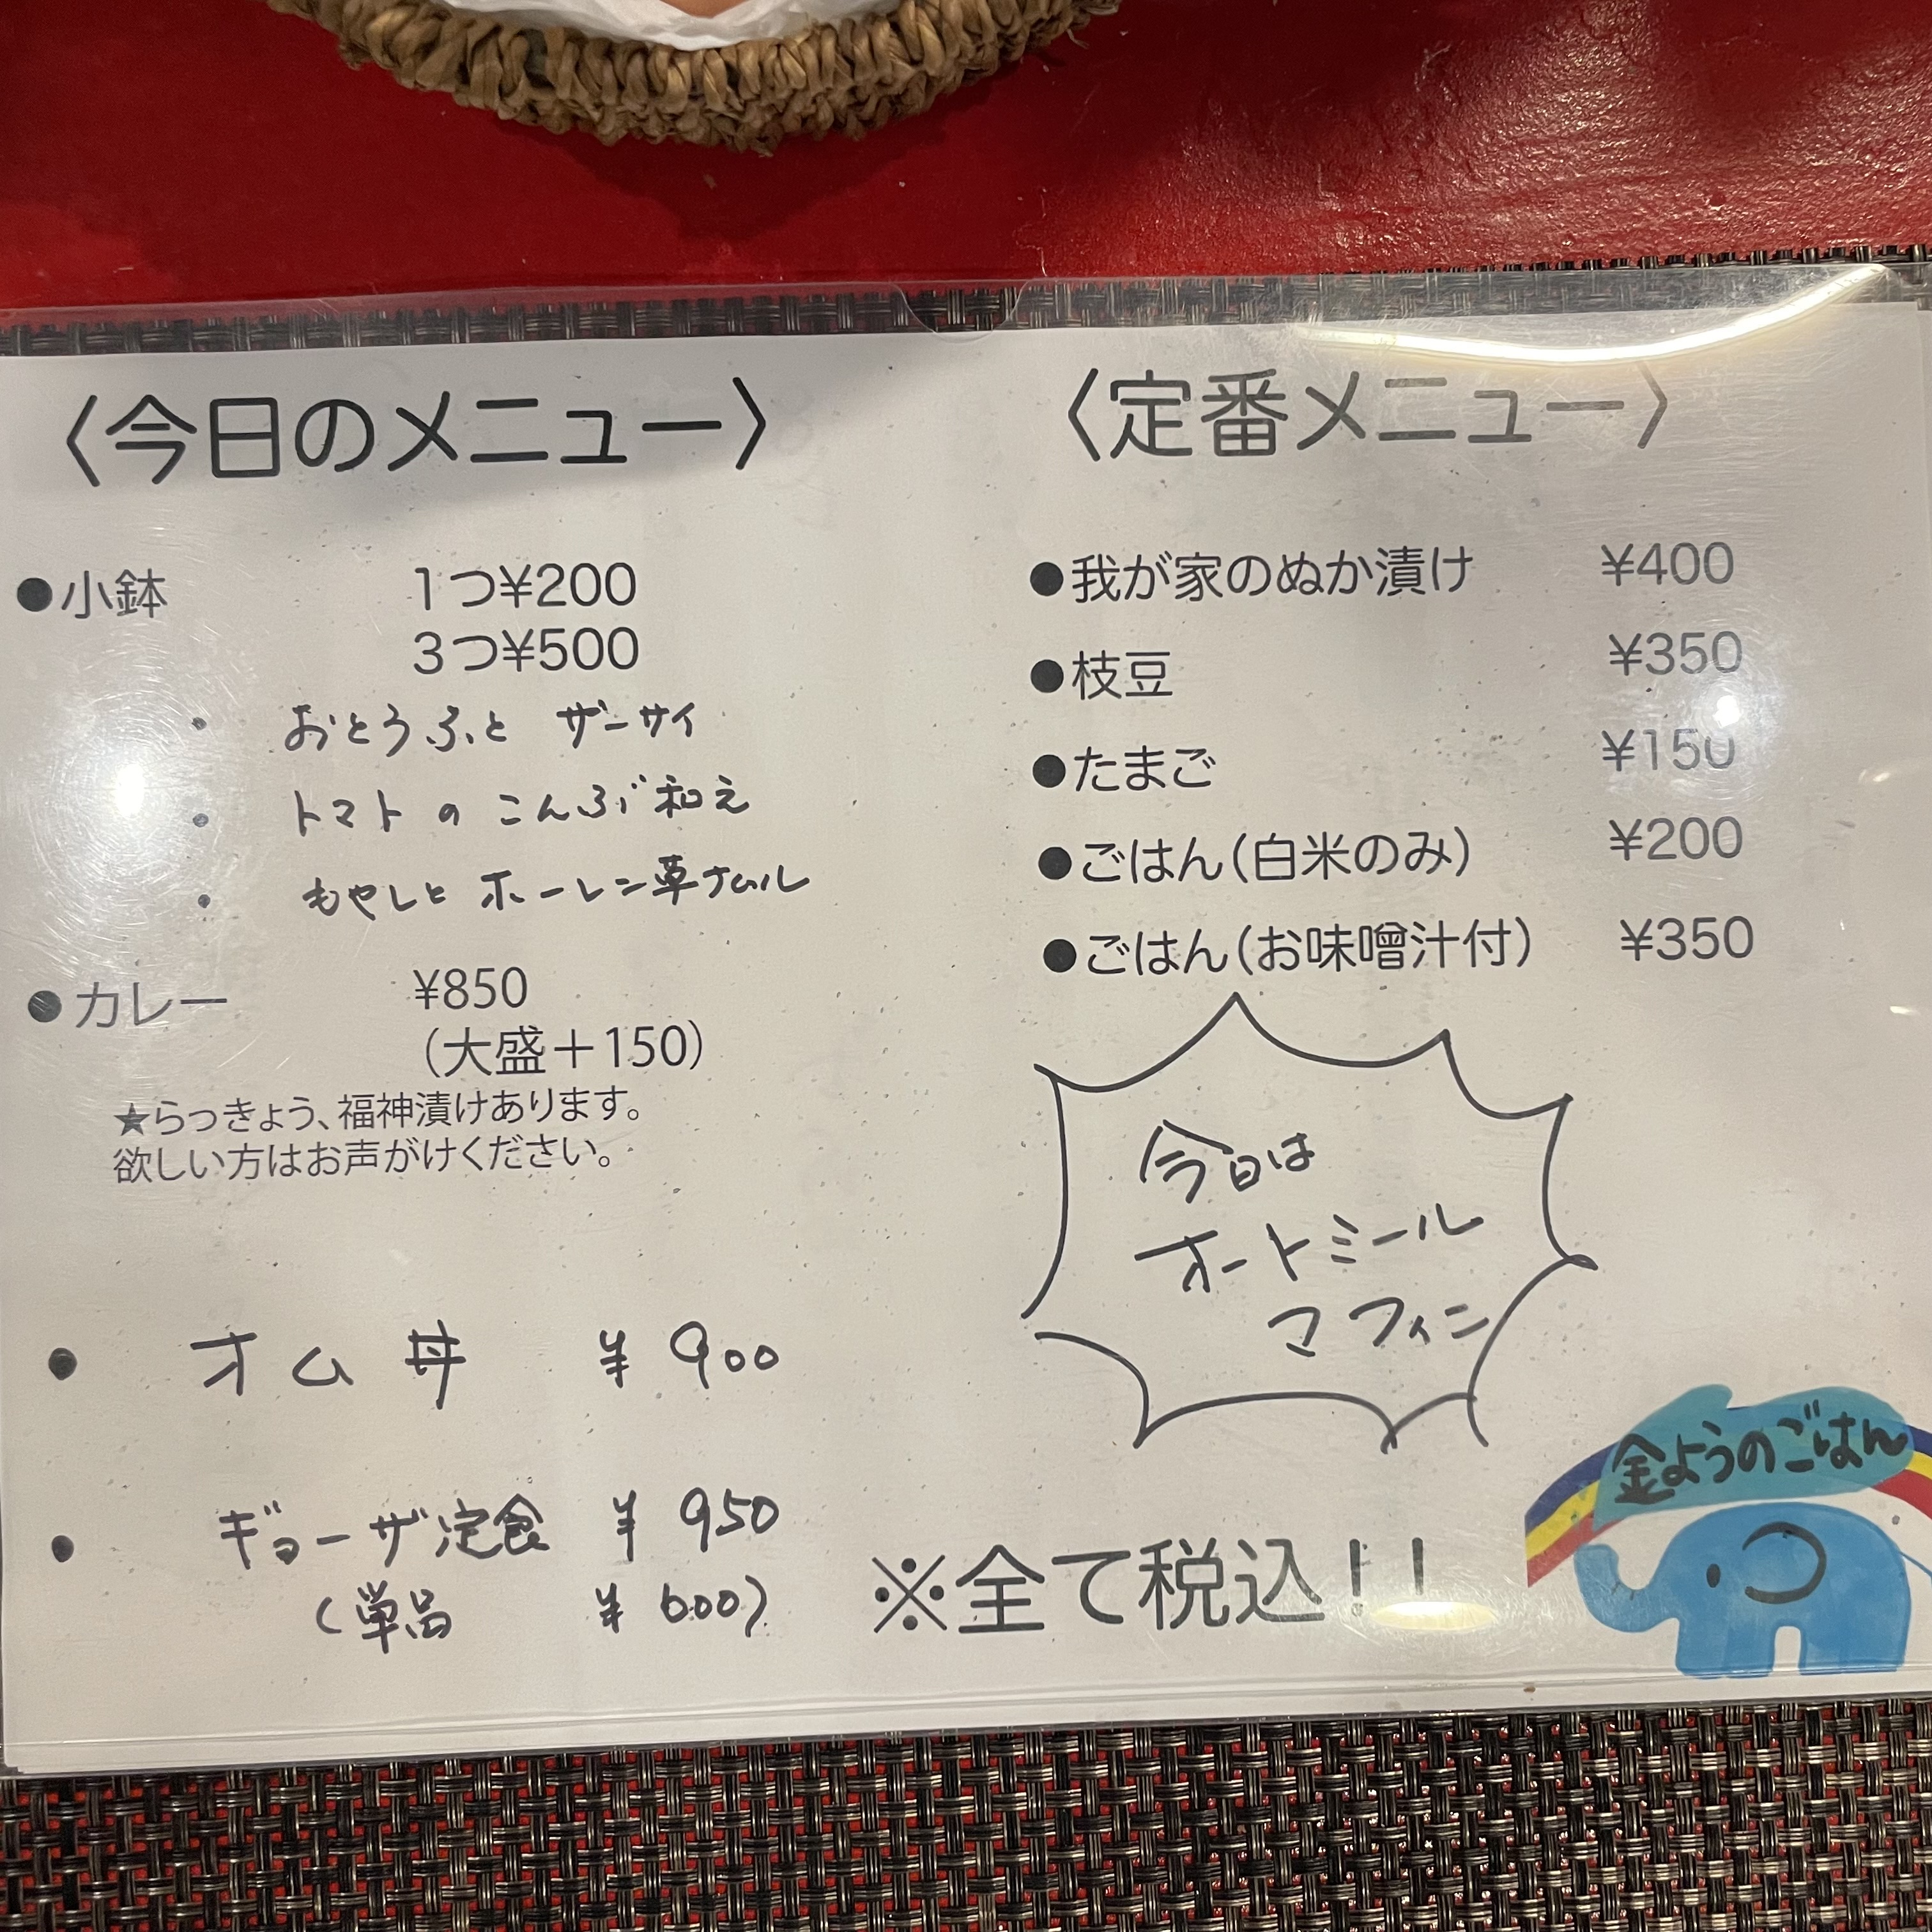 〈今日のメニュー〉
●小鉢 1つ¥200
3つ¥500
・おとうふと ザーサイ
・トマトの こんぶ和え
・もやしと ホーレン草ナムル
●カレー ¥850
（大盛＋150）
★らっきょう、福神漬けあります。
欲しい方はお声がけください。
・オム丼 ¥900
・ギョーザ定食 ¥950
（単品 ¥600）
〈定番メニュー〉
●我が家のぬか漬け ¥400
●枝豆 ¥350
●たまご ¥150
●ごはん（白米のみ） ¥200
●ごはん（お味噌汁付） ¥350
今日は
オートミール
マフィン
金ようのごはん
※全て税込！！